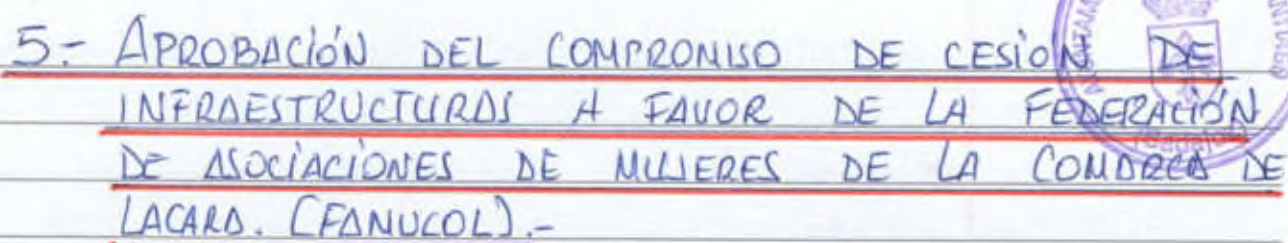 5.- APROBACIÓN DEL COMPROMISO DE CESIÓN DE
INFRAESTRUCTURAS A FAVOR DE LA FEDERACIÓN
DE ASOCIACIONES DE MUJERES DE LA COMARCA DE
LACARA. (FANUCOL).-
(Badajoz)